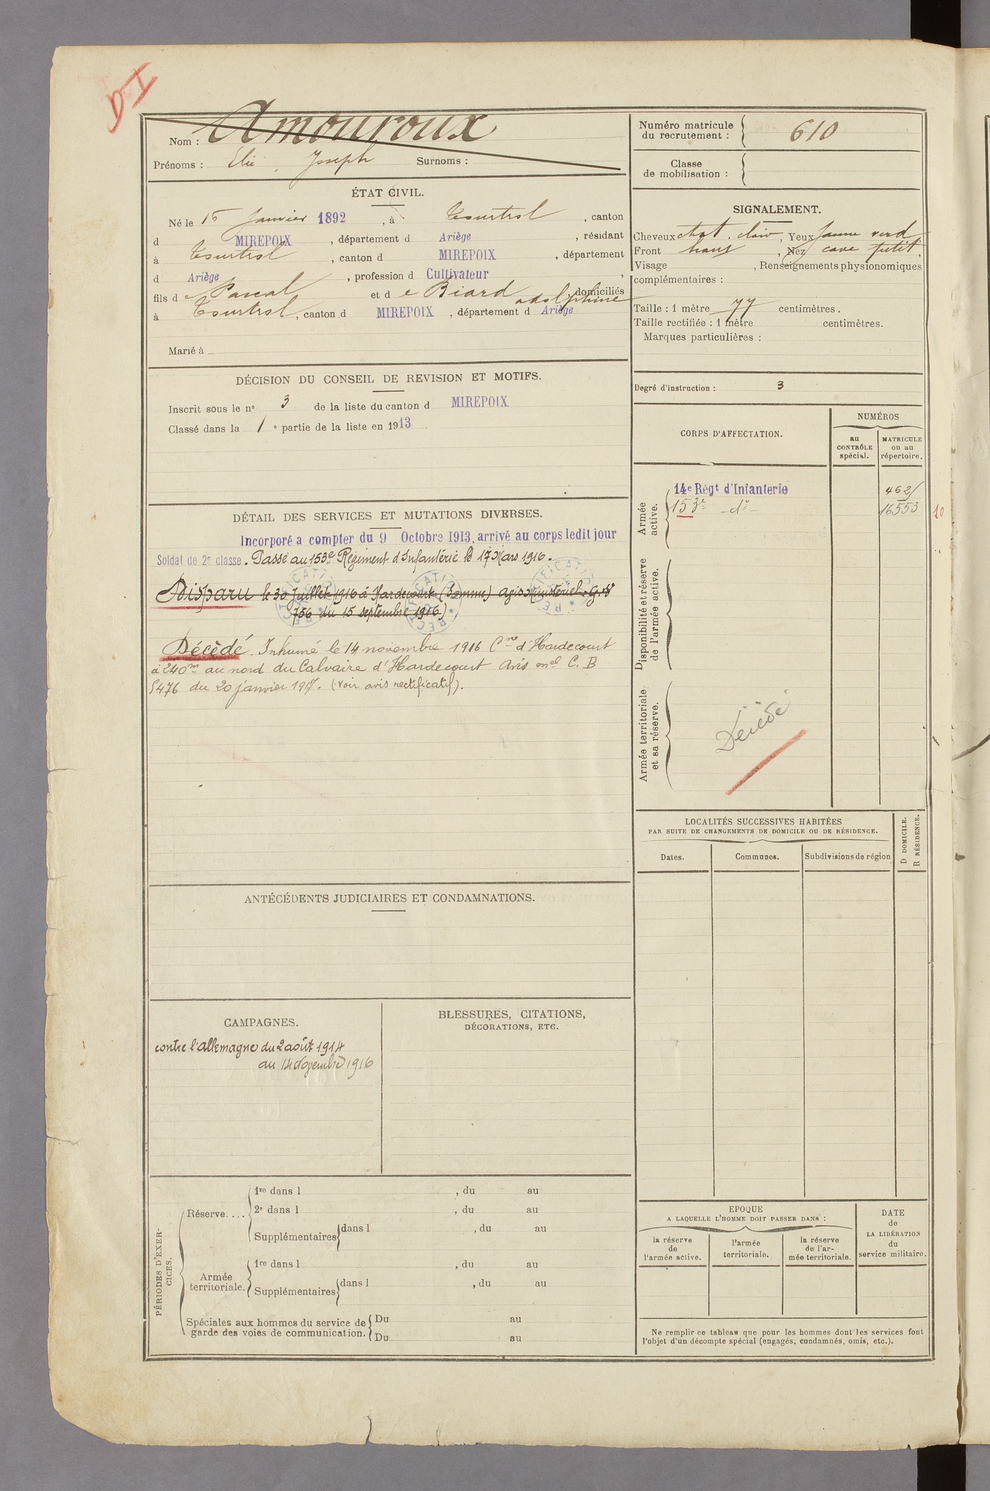 DI
Nom : Amouroux
Prénoms : Elie Joseph Surnoms :
ÉTAT CIVIL.
Né le 15 Janvier 1892, à Tourtrol, canton
d MIREPOIX, département d Ariège, résidant
à Tourtrol, canton d MIREPOIX, département
d Ariège, profession d Cultivateur,
fils de Pascal et de Biard adolphine domiciliés
à Tourtrol, canton d MIREPOIX, département d Ariège
Marié à
DÉCISION DU CONSEIL DE REVISION ET MOTIFS.
Inscrit sous le n° 3 de la liste du canton d MIREPOIX
Classé dans la 1e partie de la liste en 1913
DÉTAIL DES SERVICES ET MUTATIONS DIVERSES.
Incorporé a compter du 9 Octobre 1913, arrivé au corps ledit jour
Soldat de 2e classe. Passé au 153e Régiment d'Infanterie le 17 Mars 1916.
Disparu le 30 Juillet 1916 à Hardecourt (Somme) Avis Ministériel G.
756 du 15 septembre 1916.)
RECTIFICATION
RECTIFICATION
RECTIFICATION
Décédé. Inhumé le 14 novembre 1916 Cne d'Hardecourt
à 240m au nord du Calvaire d'Hardecourt Avis mel C. B
5476 du 20 janvier 1917. (Voir avis rectificatif).
ANTÉCÉDENTS JUDICIAIRES ET CONDAMNATIONS.
CAMPAGNES.
contre l'allemagne du 2 août 1914
au 14 Novembre 1916
BLESSURES, CITATIONS,
DÉCORATIONS, ETC.
PÉRIODES D'EXER-
CICES.
Réserve....
1re dans l , du au
2e dans l , du au
Supplémentaires dans l , du au
Armée
territoriale.
1re dans l , du au
Supplémentaires dans l , du au
Spéciales aux hommes du service de
garde des voies de communication.
Du au
Du au
Numéro matricule
du recrutement : 610
Classe
de mobilisation :
SIGNALEMENT.
Cheveux chat. clair, Yeux Jaune verd
Front haut, Nez cave petit,
Visage , Renseignements physionomiques
complémentaires :
Taille : 1 mètre 77 centimètres.
Taille rectifiée : 1 mètre centimètres.
Marques particulières :
Degré d'instruction : 3
CORPS D'AFFECTATION.
NUMÉROS
au
CONTRÔLE
spécial.
MATRICULE
OU AU
répertoire.
Armée
active.
14e Régt d'Infanterie 462/
153e -do- 16553 10
Disponibilité et réserve
de l'armée active.
Armée territoriale
et sa réserve.
Décédé
LOCALITÉS SUCCESSIVES HABITÉES
PAR SUITE DE CHANGEMENTS DE DOMICILE OU DE RÉSIDENCE.
Dates.
Communes.
Subdivisions de région
D DOMICILE.
R RÉSIDENCE.
EPOQUE
A LAQUELLE L'HOMME DOIT PASSER DANS :
la réserve
de
l'armée active.
l'armée
territoriale.
la réserve
de l'ar-
mée territoriale.
DATE
de
LA LIBÉRATION
du
service militaire.
Ne remplir ce tableau que pour les hommes dont les services font
l'objet d'un décompte spécial (engagés, condamnés, omis, etc.).